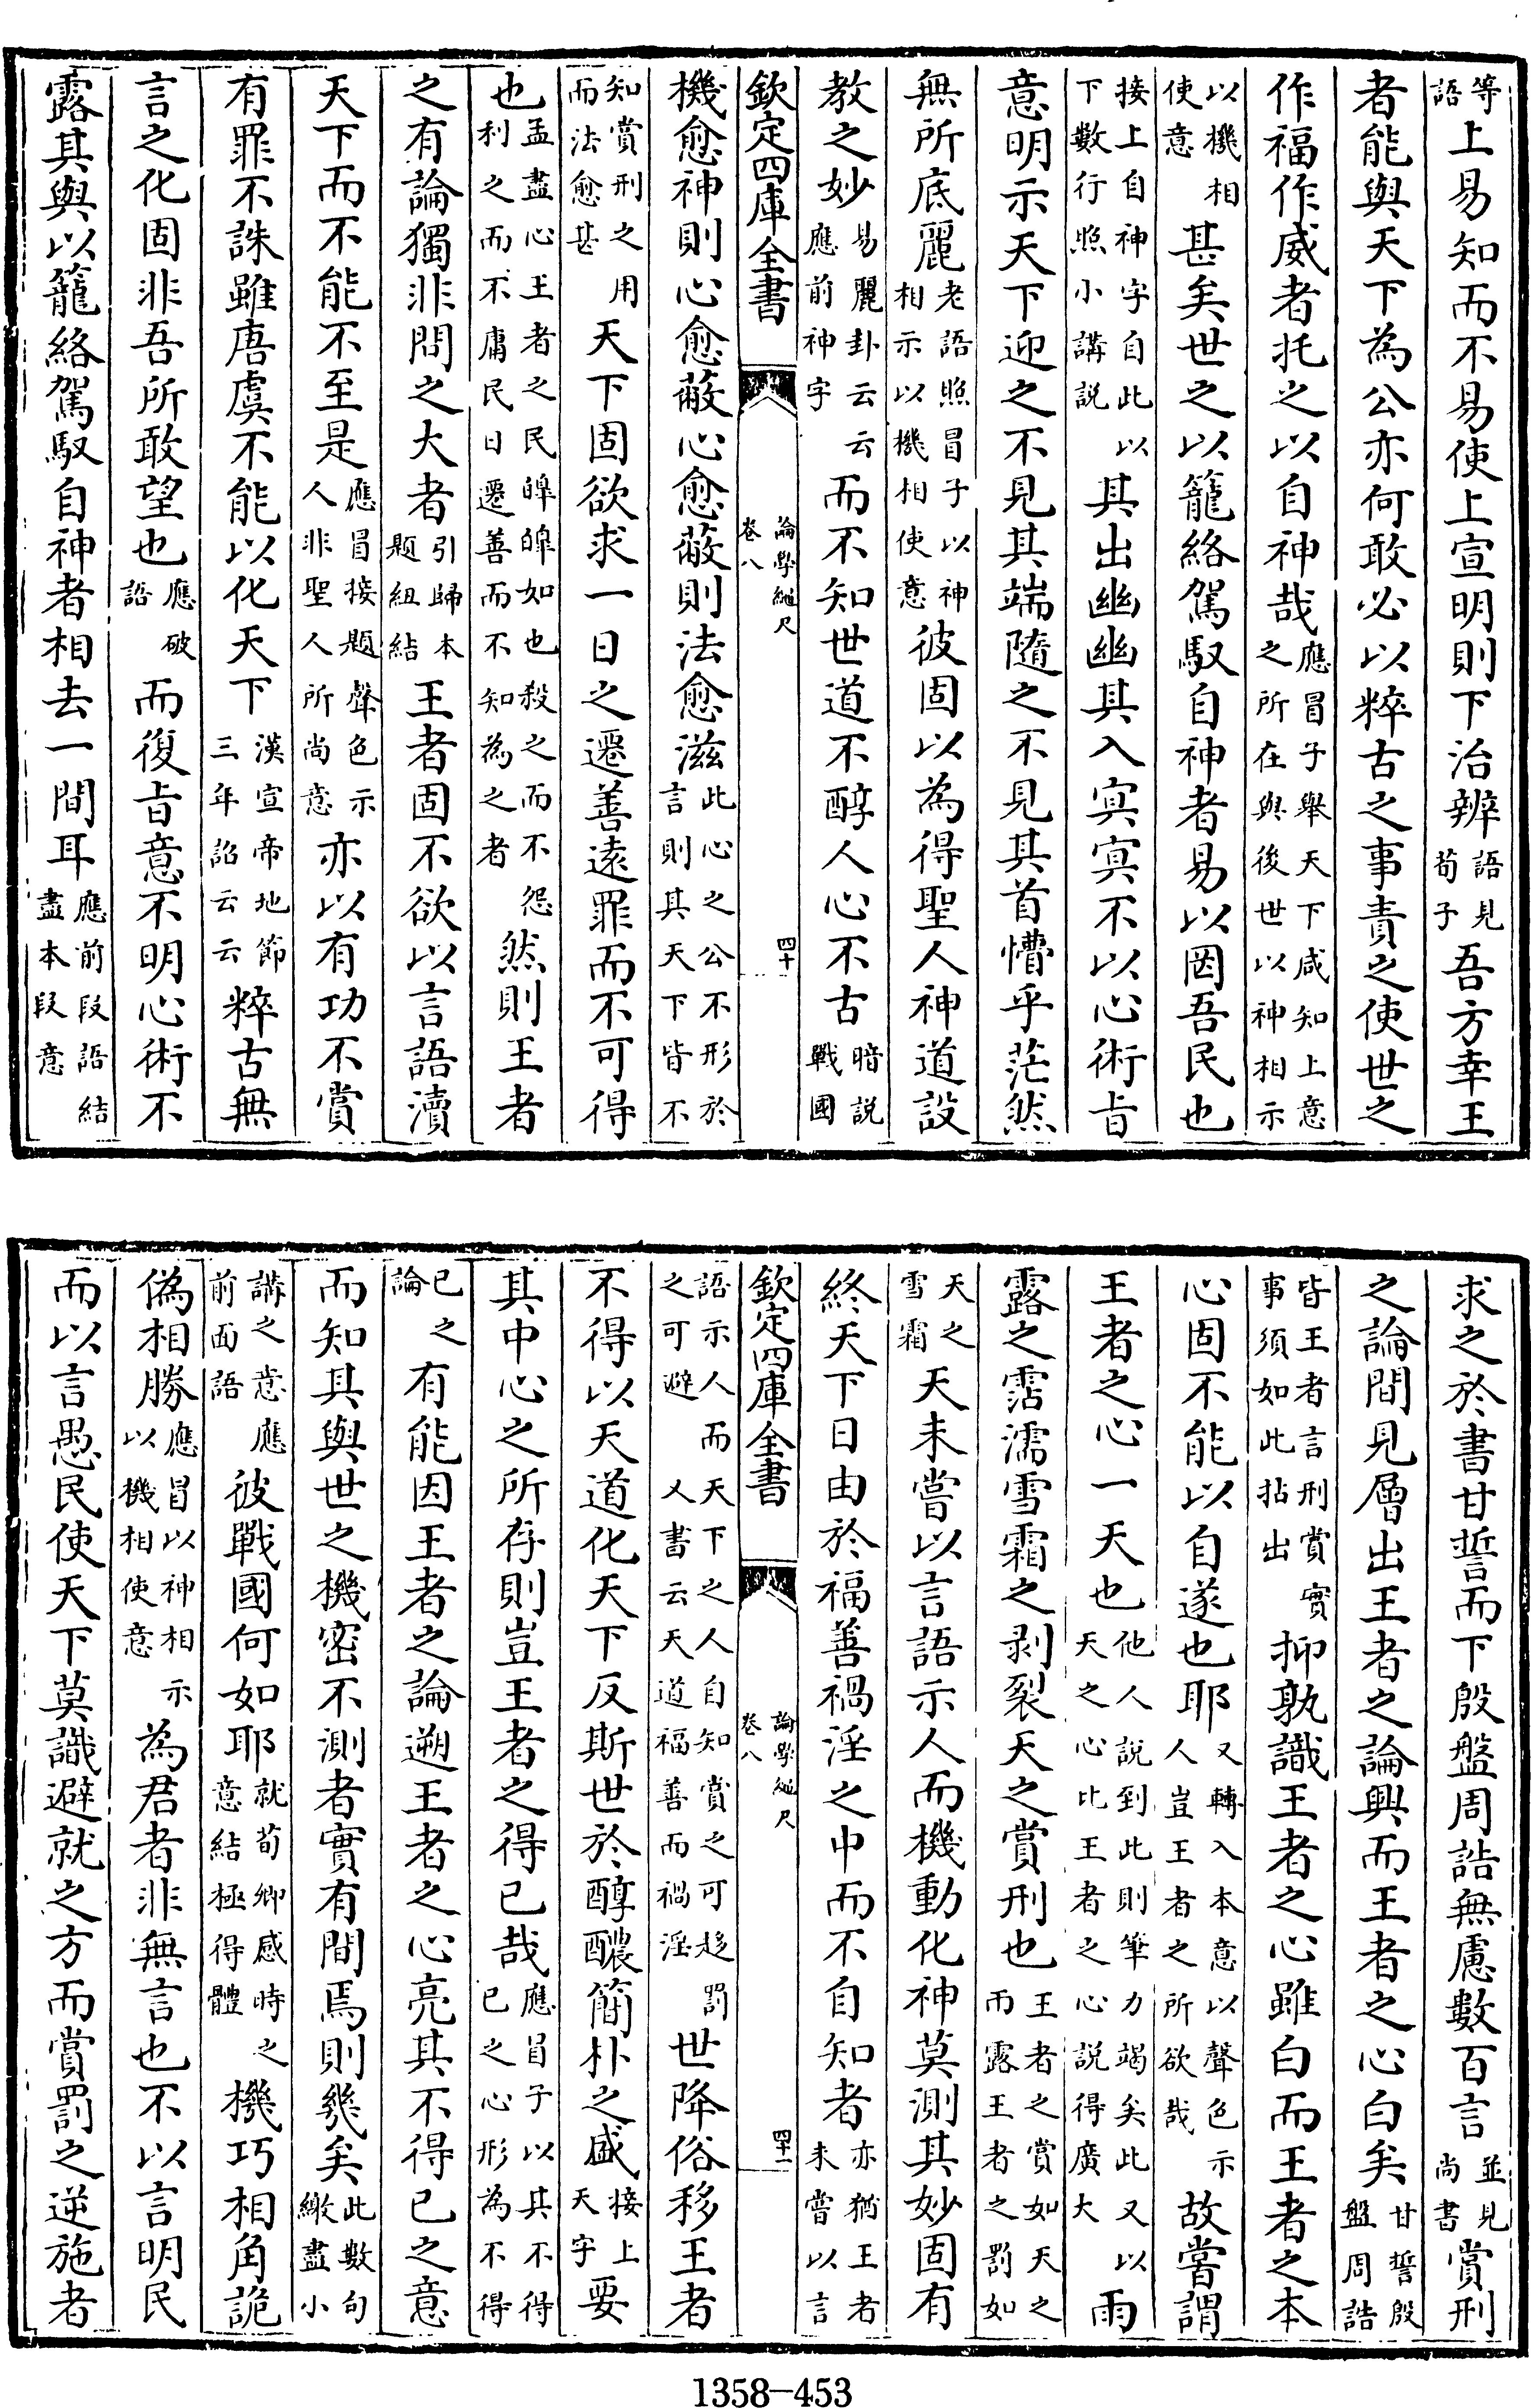 等語上易知而不易使上宣明則下治辨語見荀子吾方幸王
者能與天下為公亦何敢必以粹古之事責之使世之
作福作威者托之以自神哉應冒子舉天下咸知上意之所在與後世以神相示
以機相使意甚矣世之以籠絡駕馭自神者易以罔吾民也
接上自神字自此以下數行照小講説其出幽幽其入冥冥不以心術㫖
意明示天下迎之不見其端隨之不見其首懵乎茫然
無所底麗老語照冒子以神相示以機相使意彼固以為得聖人神道設
教之妙易麗卦云云應前神字而不知世道不醇人心不古暗説戰國
欽定四庫全書
論學繩尺
卷八
四十
機愈神則心愈蔽心愈蔽則法愈滋此心之公不形於言則其天下皆不
知賞刑之用而法愈甚天下固欲求一日之遷善遠罪而不可得
也孟盡心王者之民皥皥如也殺之而不怨利之而不庸民日遷善而不知為之者然則王者
之有論獨非問之大者引歸本題紐結王者固不欲以言語瀆
天下而不能不至是應冒接題聲色示人非聖人所尚意亦以有功不賞
有罪不誅雖唐虞不能以化天下漢宣帝地節三年詔云云粹古無
言之化固非吾所敢望也應破語而復㫖意不明心術不
露其與以籠絡駕馭自神者相去一間耳應前段語結盡本段意
求之於書甘誓而下殷盤周誥無慮數百言並見尚書賞刑
之論間見層出王者之論興而王者之心白矣甘誓殷盤周誥
皆王者言刑賞實事須如此拈出抑孰識王者之心雖白而王者之本
心固不能以自遂也耶又轉入本意以聲色示人豈王者之所欲哉故嘗謂
王者之心一天也他人說到此則筆力竭矣此又以天之心比王者之心説得廣大雨
露之霑濡雪霜之剥裂天之賞刑也王者之賞如天之而露王者之罰如
天之雪霜天未嘗以言語示人而機動化神莫測其妙固有
終天下日由於福善禍淫之中而不自知者亦猶王者未嘗以言
欽定四庫全書
論學繩尺
卷八
四十一
語示人而天下之人自知賞之可趍罰之可避又書云天道福善而禍淫世降俗移王者
不得以天道化天下反斯世於醇醲簡朴之盛接上天字要
其中心之所存則豈王者之得已哉應冒子以其不得已之心形為不得
已之論有能因王者之論遡王者之心亮其不得已之意
而知其與世之機密不測者實有間焉則幾矣此數句繳盡小
講之意應前面語彼戰國何如耶就荀卿感時之意結極得體機巧相角詭
偽相勝應冒以神相示以機相使意為君者非無言也不以言明民
而以言愚民使天下莫識避就之方而賞罰之逆施者
1358-453